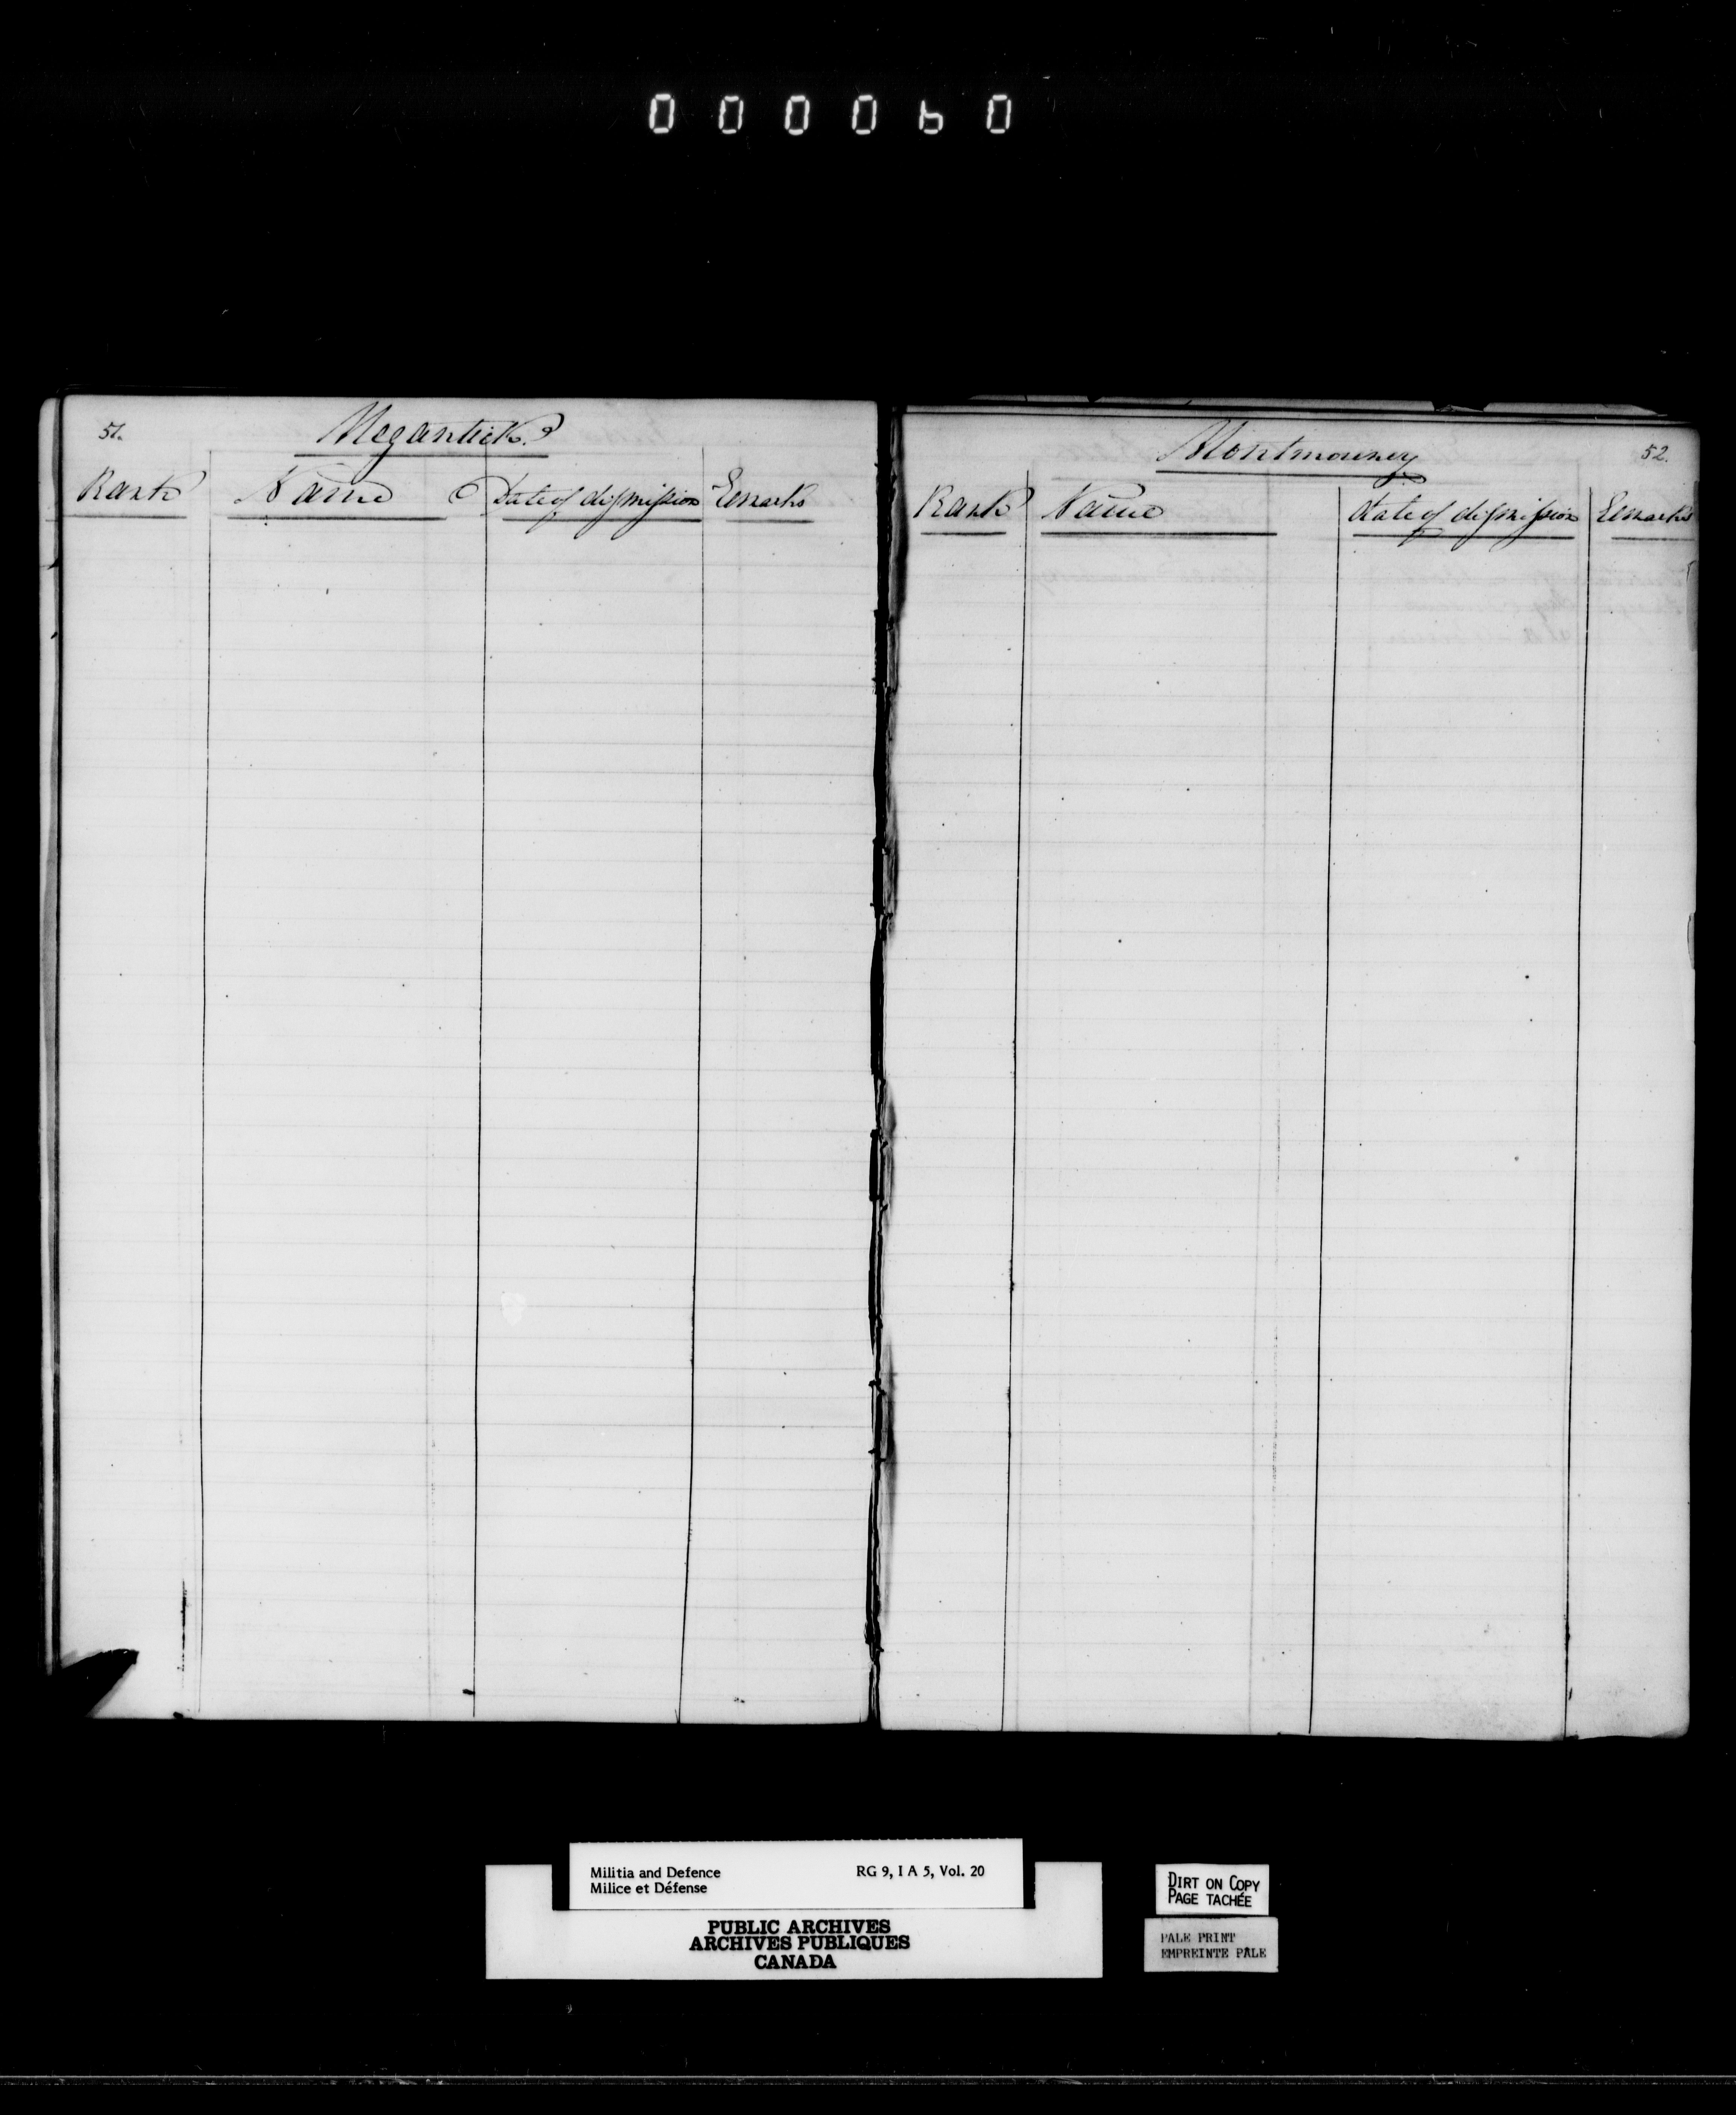 000060
51.
Megantick
Rank Name Date of dismission Remarks
Montmouney
52.
Rank Name Date of dismission Remarks
Militia and Defence RG 9, I A 5, Vol. 20
Milice et Défense
PUBLIC ARCHIVES
ARCHIVES PUBLIQUES
CANADA
DIRT ON COPY
PAGE TACHÉE
PALE PRINT
EMPREINTE PÂLE